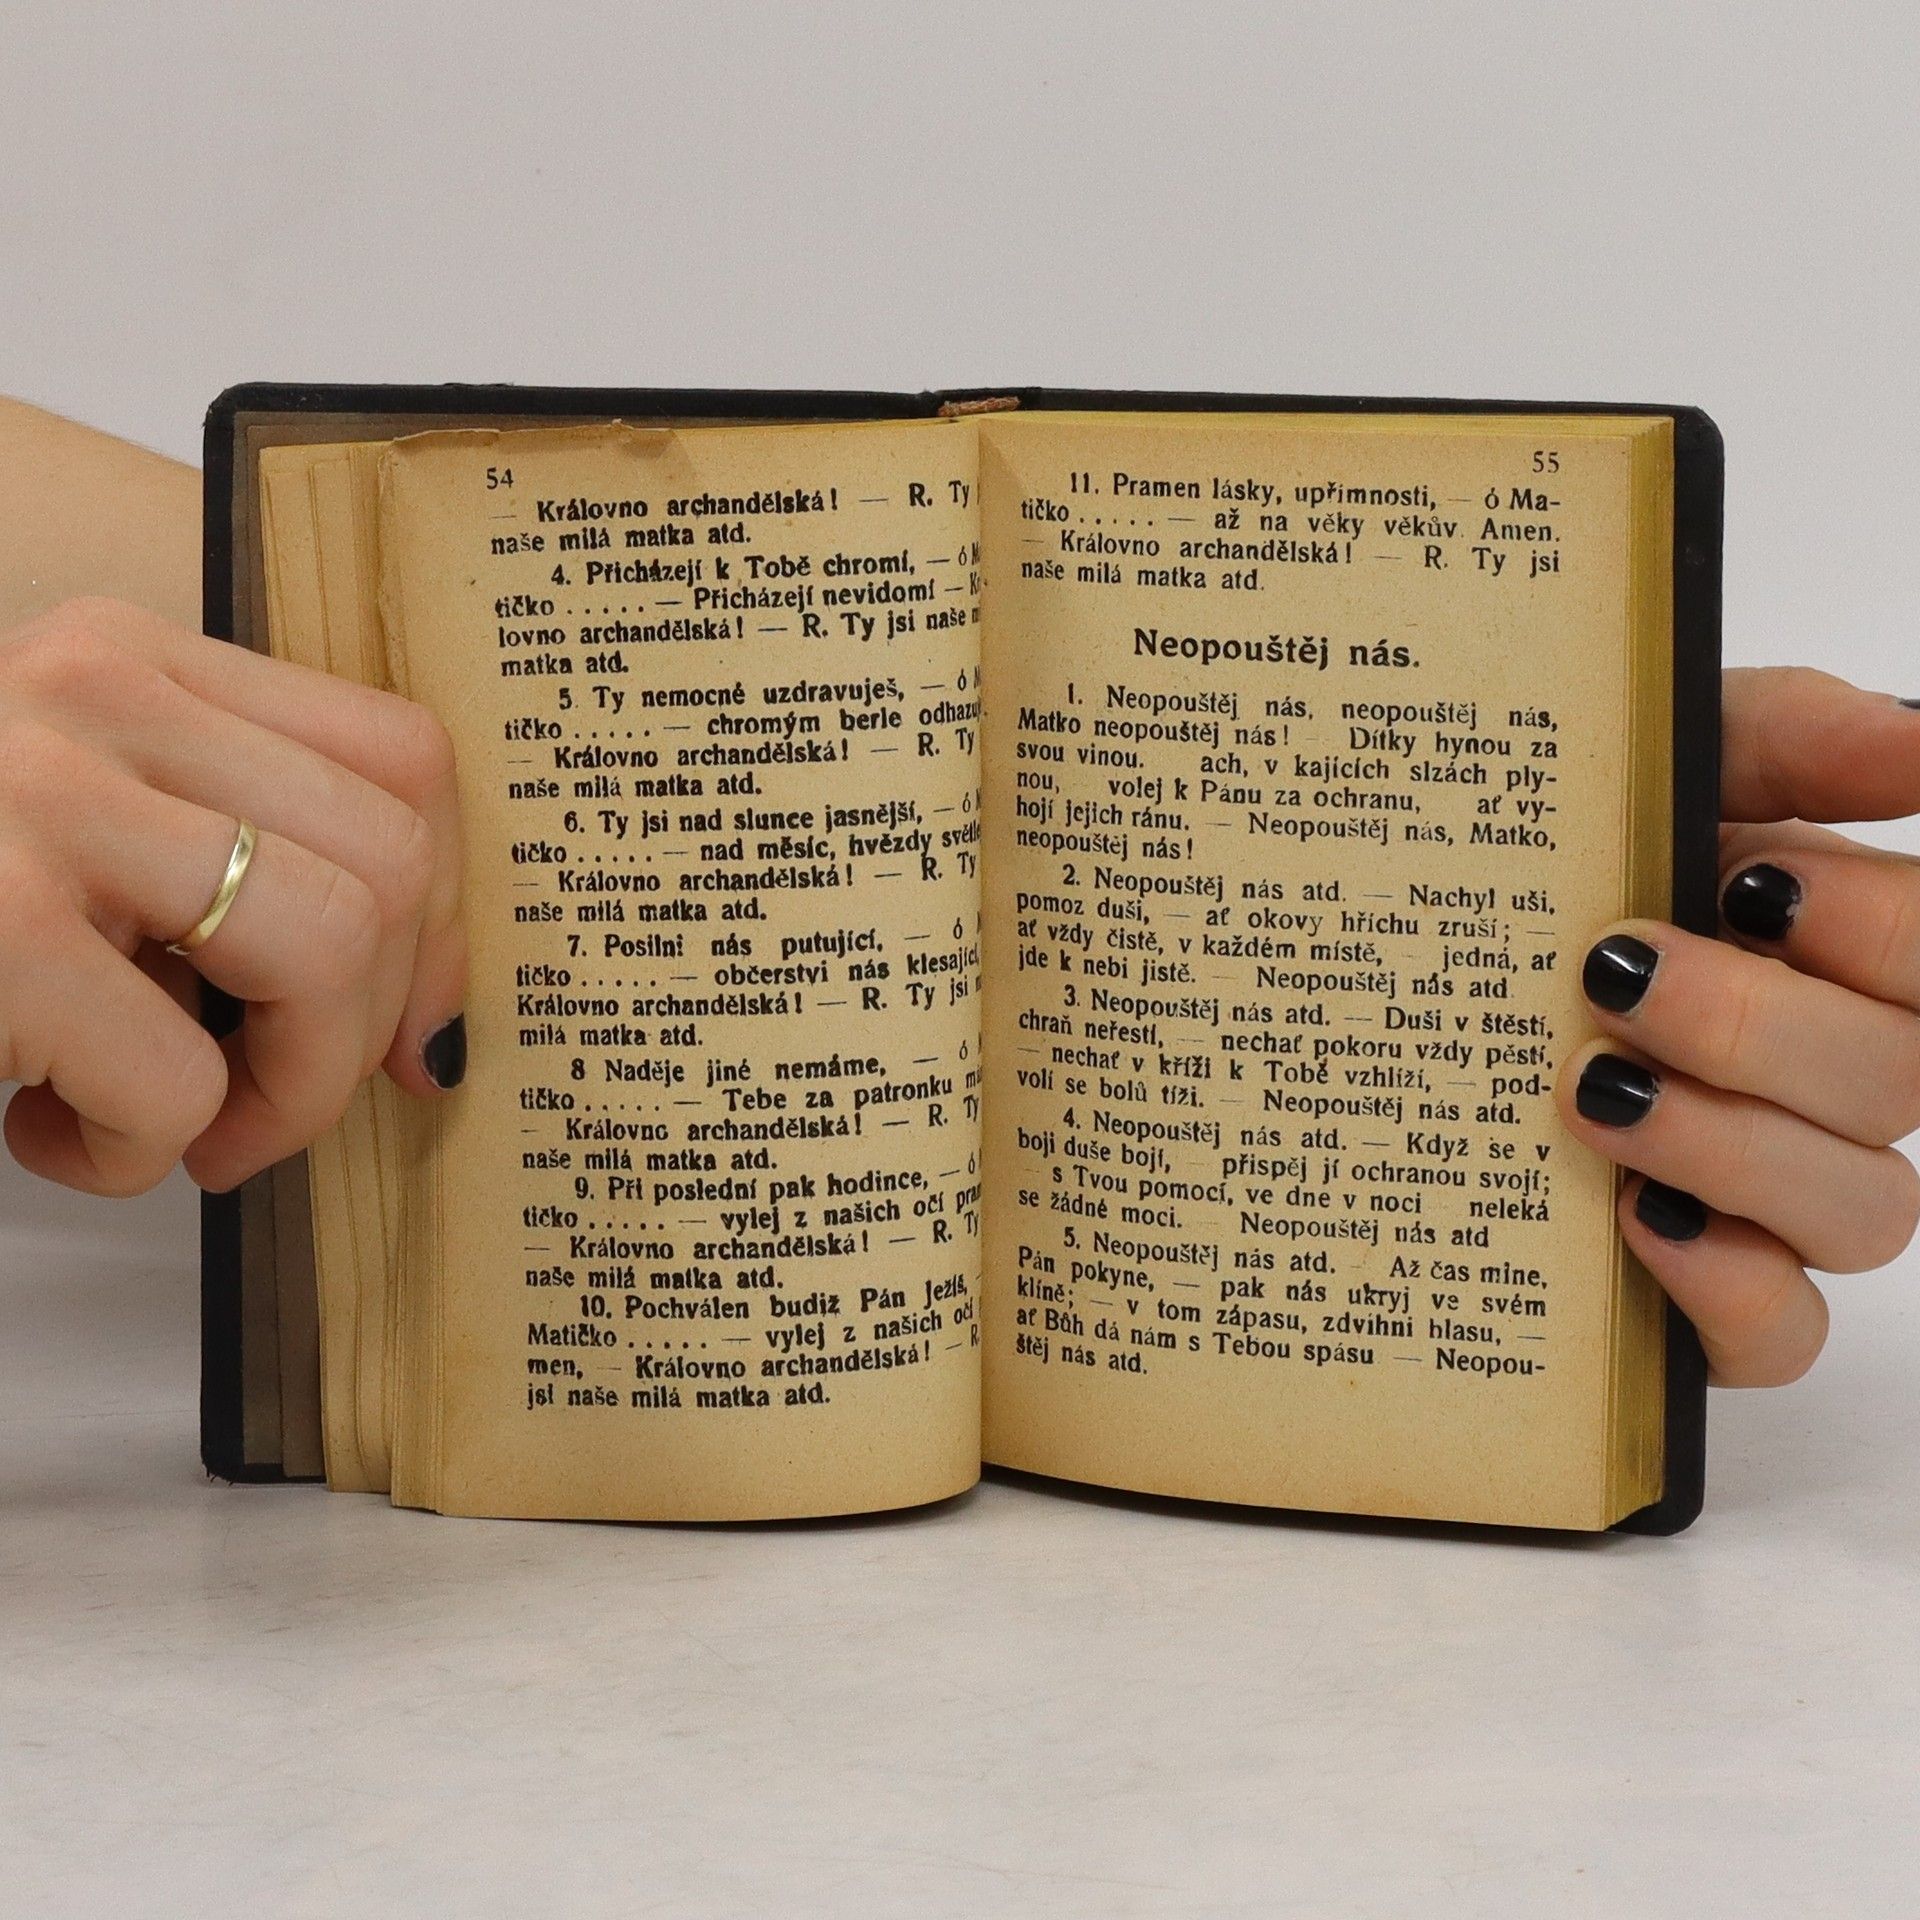 54
— Královno archandělská! — R. Ty
naše milá matka atd.
4. Přicházejí k Tobě chromí, — ó
tičko . . . . . — Přicházejí nevidomí —
lovno archandělská! — R. Ty jsi naše
matka atd.
5. Ty nemocné uzdravuješ, — ó
tičko . . . . . — chromým berle
— Královno archandělská! — R. Ty
naše milá matka atd.
6. Ty jsi nad slunce jasnější, — ó
tičko . . . . . — nad měsíc, hvězdy
— Královno archandělská! — R. Ty
naše milá matka atd.
7. Posilni nás putující, — ó
tičko . . . . . — občerstvi nás
Královno archandělská! — R. Ty jsi
milá matka atd.
8 Naděje jiné nemáme, — ó
tičko . . . . . — Tebe za patronku
— Královno archandělská! — R. Ty
naše milá matka atd.
9. Při poslední pak hodince, — ó
tičko . . . . . — vylej z našich očí
— Královno archandělská! — R. Ty
naše milá matka atd.
10. Pochválen budiž Pán Ježíš, —
Matičko . . . . . — vylej z našich očí
men, — Královno archandělská! — R.
jsi naše milá matka atd.
55
11. Pramen lásky, upřímnosti, — ó Ma-
tičko . . . . . — až na věky věkův. Amen.
— Královno archandělská! — R. Ty jsi
naše milá matka atd.
Neopouštěj nás.
1. Neopouštěj nás, neopouštěj nás,
Matko neopouštěj nás! — Dítky hynou za
svou vinou. ach, v kajících slzách ply-
nou, volej k Pánu za ochranu, ať vy-
hojí jejich ránu. — Neopouštěj nás, Matko,
neopouštěj nás!
2. Neopouštěj nás atd. — Nachyl uši,
pomoz duši, — ať okovy hříchu zruší; —
ať vždy čistě, v každém místě, — jedná, ať
jde k nebi jistě. — Neopouštěj nás atd.
3. Neopouštěj nás atd. — Duši v štěstí,
chraň neřestí, — nechať pokoru vždy pěstí,
— nechať v kříži k Tobě vzhlíží, — pod-
volí se bolů tíži. — Neopouštěj nás atd.
4. Neopouštěj nás atd. — Když se v
boji duše bojí, — přispěj jí ochranou svojí;
s Tvou pomocí, ve dne v noci neleká
se žádné moci. — Neopouštěj nás atd
5. Neopouštěj nás atd. — Až čas mine,
Pán pokyne, — pak nás ukryj ve svém
klíně; — v tom zápasu, zdvihni hlasu, —
ať Bůh dá nám s Tebou spásu — Neopou-
štěj nás atd.